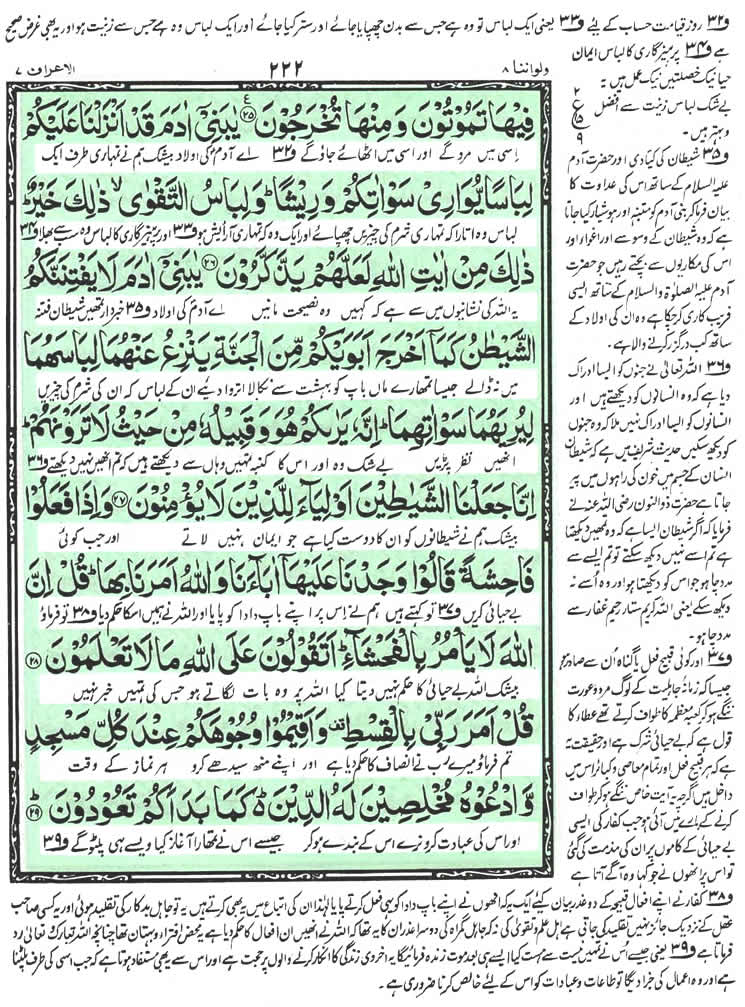 و۳۲ روز قیامت حساب کے لئے و۳۳ یعنی ایک لباس تو وہ ہے جس سے بدن چھپایا جائے اور ستر کیا جائے اور ایک لباس وہ ہے جس سے زینت ہو اور یہ بھی غرض صحیح
ہے و۳۴ پرہیزگاری کا لباس ایمان
حیا نیک خصلتیں نیک عمل ہیں یہ
بے شک لباس زینت سے افضل
و بہتر ہیں۔
و۳۵ شیطان کی کیادی اور حضرت آدم
علیہ السلام کے ساتھ اس کی عداوت کا
بیان فرما کر بنی آدم کو متنبہ اور ہوشیار کیا جاتا
ہے کہ وہ شیطان کے وسوسے اور اغوا اور
اس کی مکاریوں سے بچتے رہیں جو حضرت
آدم علیہ الصلوٰۃ والسلام کے ساتھ ایسی
فریب کاری کر چکا ہے وہ ان کی اولاد کے
ساتھ کب درگزر کرنے والا ہے۔
و۳۶ اللہ تعالیٰ نے جنوں کو ایسا ادراک
دیا ہے کہ وہ انسانوں کو دیکھتے ہیں اور
انسانوں کو ایسا ادراک نہیں ملا کہ وہ جنوں
کو دیکھ سکیں حدیث شریف میں ہے کہ شیطان
انسان کے جسم میں خون کی راہوں میں پیر
جاتا ہے حضرت ذوالنون رضی اللہ عنہ نے
فرمایا کہ اگر شیطان ایسا ہے کہ وہ تمہیں دیکھتا
ہے تم اسے نہیں دیکھ سکتے تو تم ایسے سے
مدد چاہو جو اس کو دیکھتا ہو اور وہ اُسے نہ
دیکھ سکے یعنی اللہ کریم ستار رحیم غفار سے
مدد چاہو۔
و۳۷ اور کوئی قبیح فعل یا گناہ اُن سے صادر ہو
جیسا کہ زمانۂ جاہلیت کے لوگ مرد و عورت
ننگے ہو کر کعبہ معظمہ کا طواف کرتے تھے عطا کا
قول ہے کہ بے حیائی شرک ہے اور حقیقت یہ
ہے کہ ہر قبیح فعل اور تمام معاصی و کبائر اس میں
داخل ہیں اگرچہ یہ آیت خاص ننگے ہو کر طواف
کرنے کے بارے میں آئی ہو جب کفار کی ایسی
بے حیائی کے کاموں پر ان کی مذمت کی گئی
تو اس پر انھوں نے جو کہا وہ آگے آتا ہے
ولواننا ۸
۲۲۲
الاعراف ۷
فِيْهَا تَمُوْتُوْنَ وَمِنْهَا تُخْرَجُوْنَ ۝۲۵ يٰبَنِيْۤ اٰدَمَ قَدْ اَنْزَلْنَا عَلَيْكُمْ
اسی میں مرو گے اور اسی میں اٹھائے جاؤ گے و۳۲ اے آدم کی اولاد بیشک ہم نے تمہاری طرف ایک
لِبَاسًا يُّوَارِيْ سَوْاٰتِكُمْ وَرِيْشًا ؕ وَلِبَاسُ التَّقْوٰى ۙ ذٰلِكَ خَيْرٌ ؕ
لباس وہ اتارا کہ تمہاری شرم کی چیزیں چھپائے اور ایک وہ کہ تمہاری آرائش ہو و۳۳ اور پرہیزگاری کا لباس وہ سب سے بھلا و۳۴
ذٰلِكَ مِنْ اٰيٰتِ اللّٰهِ لَعَلَّهُمْ يَذَّكَّرُوْنَ ۝۲۶ يٰبَنِيْۤ اٰدَمَ لَا يَفْتِنَنَّكُمُ
یہ اللہ کی نشانیوں میں سے ہے کہ کہیں وہ نصیحت مانیں اے آدم کی اولاد و۳۵ خبردار تمہیں شیطان فتنہ
الشَّيْطٰنُ كَمَاۤ اَخْرَجَ اَبَوَيْكُمْ مِّنَ الْجَنَّةِ يَنْزِعُ عَنْهُمَا لِبَاسَهُمَا
میں نہ ڈالے جیسا تمہارے ماں باپ کو بہشت سے نکالا اتروا دیے ان کے لباس کہ ان کی شرم کی چیزیں
لِيُرِيَهُمَا سَوْاٰتِهِمَا ؕ اِنَّهٗ يَرٰىكُمْ هُوَ وَقَبِيْلُهٗ مِنْ حَيْثُ لَا تَرَوْنَهُمْ ؕ
انھیں نظر پڑیں بے شک وہ اور اس کا کنبہ تمہیں وہاں سے دیکھتے ہیں کہ تم انھیں نہیں دیکھتے و۳۶
اِنَّا جَعَلْنَا الشَّيٰطِيْنَ اَوْلِيَآءَ لِلَّذِيْنَ لَا يُؤْمِنُوْنَ ۝۲۷ وَاِذَا فَعَلُوْا
بیشک ہم نے شیطانوں کو ان کا دوست کیا ہے جو ایمان نہیں لاتے اور جب کوئی
فَاحِشَةً قَالُوْا وَجَدْنَا عَلَيْهَاۤ اٰبَآءَنَا وَاللّٰهُ اَمَرَنَا بِهَا ؕ قُلْ اِنَّ
بے حیائی کریں و۳۷ تو کہتے ہیں ہم نے اس پر اپنے باپ دادا کو پایا اور اللہ نے ہمیں اس کا حکم دیا و۳۸ تو فرماؤ
اللّٰهَ لَا يَاْمُرُ بِالْفَحْشَآءِ ؕ اَتَقُوْلُوْنَ عَلَى اللّٰهِ مَا لَا تَعْلَمُوْنَ ۝۲۸
بیشک اللہ بے حیائی کا حکم نہیں دیتا کیا اللہ پر وہ بات لگاتے ہو جس کی تمہیں خبر نہیں
قُلْ اَمَرَ رَبِّيْ بِالْقِسْطِ ۫ وَاَقِيْمُوْا وُجُوْهَكُمْ عِنْدَ كُلِّ مَسْجِدٍ
تم فرماؤ میرے رب نے انصاف کا حکم دیا ہے اور اپنے منھ سیدھے کرو ہر نماز کے وقت
وَّادْعُوْهُ مُخْلِصِيْنَ لَهُ الدِّيْنَ ؕ كَمَا بَدَاَكُمْ تَعُوْدُوْنَ ۝۲۹
اور اس کی عبادت کرو نرے اس کے بندے ہو کر جیسے اس نے تمہارا آغاز کیا ویسے ہی پلٹو گے و۳۹
و۳۸ کفار نے اپنے افعال قبیحہ کے دو عذر بیان کئے ایک یہ کہ انھوں نے اپنے باپ دادا کو یہی فعل کرتے پایا لہٰذا ان کی اتباع میں یہ بھی کرتے ہیں یہ تو جاہل بدکار کی تقلید ہوئی اور یہ کسی صاحب
عقل کے نزدیک جائز نہیں تقلید کی جاتی ہے اہل علم و تقویٰ کی نہ کہ جاہل گمراہ کی دوسرا عذر ان کا یہ تھا کہ اللہ نے انھیں ان افعال کا حکم دیا ہے یہ محض افتراء و بہتان تھا چنانچہ اللہ تبارک تعالیٰ رد
فرماتا ہے و۳۹ یعنی جیسے اُس نے تمہیں نیست سے ہست کیا ایسے ہی بعد موت زندہ فرمائیگا یہ اخروی زندگی کا انکار کرنے والوں پر حجت ہے اور اس سے یہ بھی مستفاد ہوتا ہے کہ جب اسی کی طرف پلٹنا
ہے اور وہ اعمال کی جزا دیگا تو طاعات و عبادات کو اس کے لئے خالص کرنا ضروری ہے۔